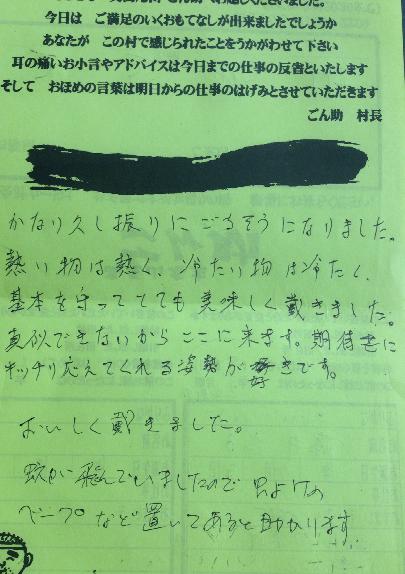 今日は ご満足のいくおもてなしが出来ましたでしょうか
あなたが この村で感じられたことをうかがわせて下さい
耳の痛いお小言やアドバイスは今日までの仕事の反省といたします
そして おほめの言葉は明日からの仕事のはげみとさせていただきます
ごん助 村長
かなり久し振りにごちそうになりました。
熱い物は熱く、冷たい物は冷たく、
基本を守ってとても美味しく戴きました。
真似できないからここに来ます。期待書に
キッチリ応えてくれる姿勢が好きです。
おいしく戴きました。
蚊が飛んでいましたので虫よけの
ベープなど置いてあると助かります